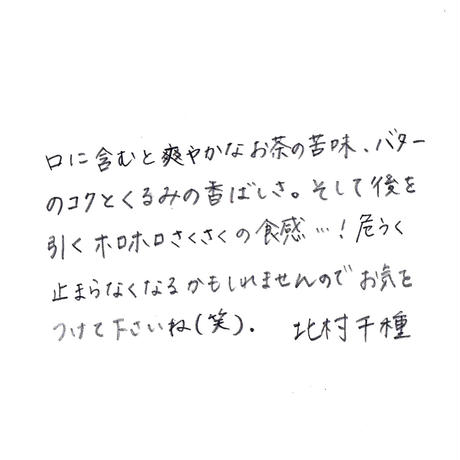 口に含むと爽やかなお茶の苦味、バター
のコクとくるみの香ばしさ。そして後を
引くホロホロさくさくの食感…！危うく
止まらなくなるかもしれませんのでお気を
つけて下さいね(笑)．　北村千種